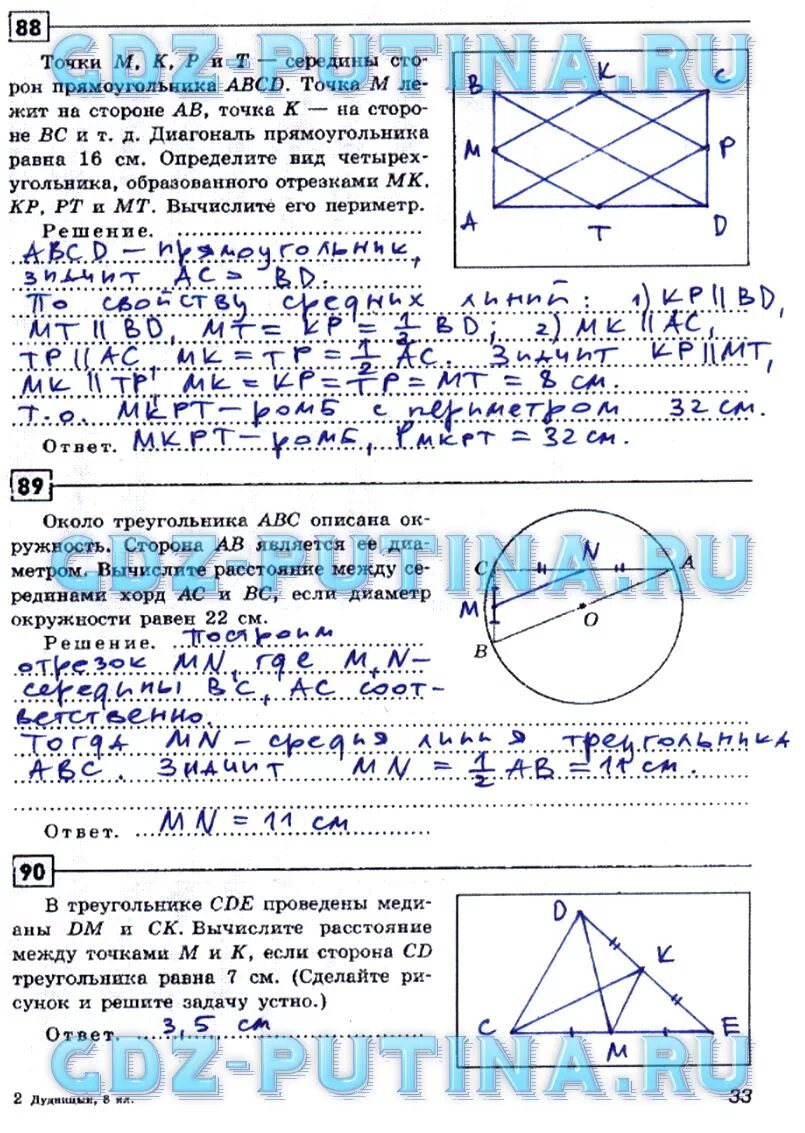 88
Точки M, K, P и T — середины сто-
рон прямоугольника ABCD. Точка M ле-
жит на стороне AB, точка K — на сторо-
не BC и т. д. Диагональ прямоугольника
равна 16 см. Определите вид четырех-
угольника, образованного отрезками MK,
KP, PT и MT. Вычислите его периметр.
B K C
M P
A T D
Решение.
ABCD — прямоугольник,
значит AC = BD.
По свойству средних линий: 1) KP || BD,
MT || BD, MT = KP = 1/2 BD; 2) MK || AC,
TP || AC MK = TP = 1/2 AC. Значит KP || MT,
MK || TP, MK = KP = TP = MT = 8 см.
Т.о. MKPT — ромб с периметром 32 см.
Ответ. MKPT — ромб, Pмкрт = 32 см.
89
Около треугольника ABC описана ок-
ружность. Сторона AB является ее диа-
метром. Вычислите расстояние между се-
рединами хорд AC и BC, если диаметр
окружности равен 22 см.
C N A
M O
B
Решение. Построим
отрезок MN, где M, N —
середины BC, AC соот-
ветственно.
Тогда MN — средняя линия треугольника
ABC. Значит MN = 1/2 AB = 11 см.
Ответ. MN = 11 см
90
В треугольнике CDE проведены меди-
аны DM и CK. Вычислите расстояние
между точками M и K, если сторона CD
треугольника равна 7 см. (Сделайте ри-
сунок и решите задачу устно.)
Ответ. 3,5 см
D
K
C M E
2 Дудницын, 8 кл.
33
GDZ-PUTINA.RU
GDZ-PUTINA.RU
GDZ-PUTINA.RU